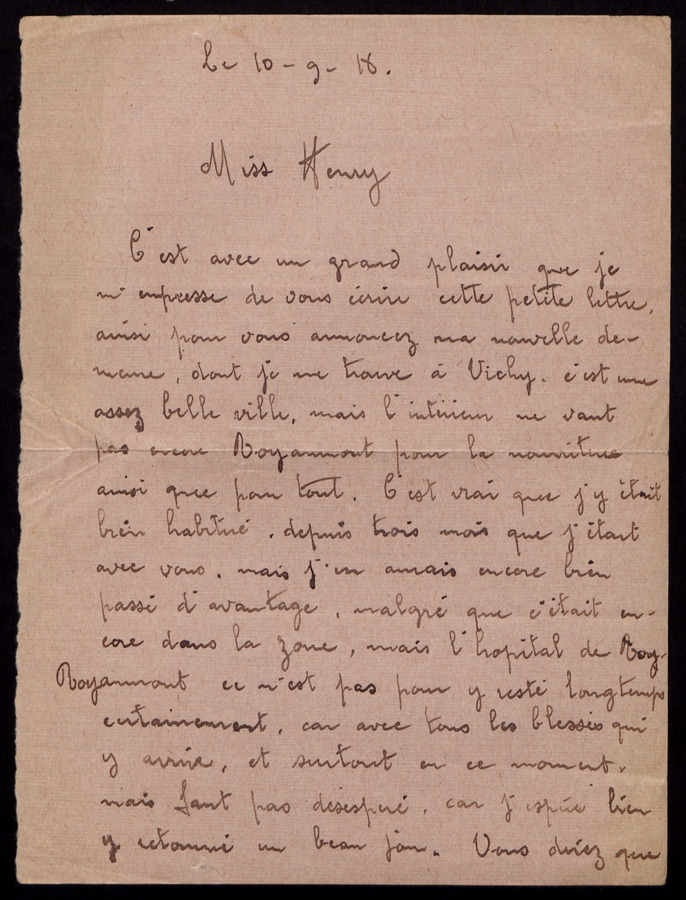 Le 10 - 9 - 18.
Miss Henry
C'est avec un grand plaisir que je
m'empresse de vous écrire cette petite lettre,
ainsi pour vous annoncez ma nouvelle de-
meure, dont je me trouve à Vichy. c'est une
assez belle ville, mais l'intérieur ne vaut
pas encore Royaumont pour la nourriture
ainsi que pour tout. C'est vrai que j'y était
bien habitué. depuis trois mois que j'étais
avec vous. mais j'en aurais encore bien
passé d'avantage, malgré que c'était en-
core dans la zone, mais l'hopital de Roy-
Royaumont ce n'est pas pour y resté longtemps
certainement, car avec tous les blessés qui
y arrive, et surtout en ce moment.
mais faut pas désespéré, car j'espére bien
y retourné un beau jour. Vous direz que